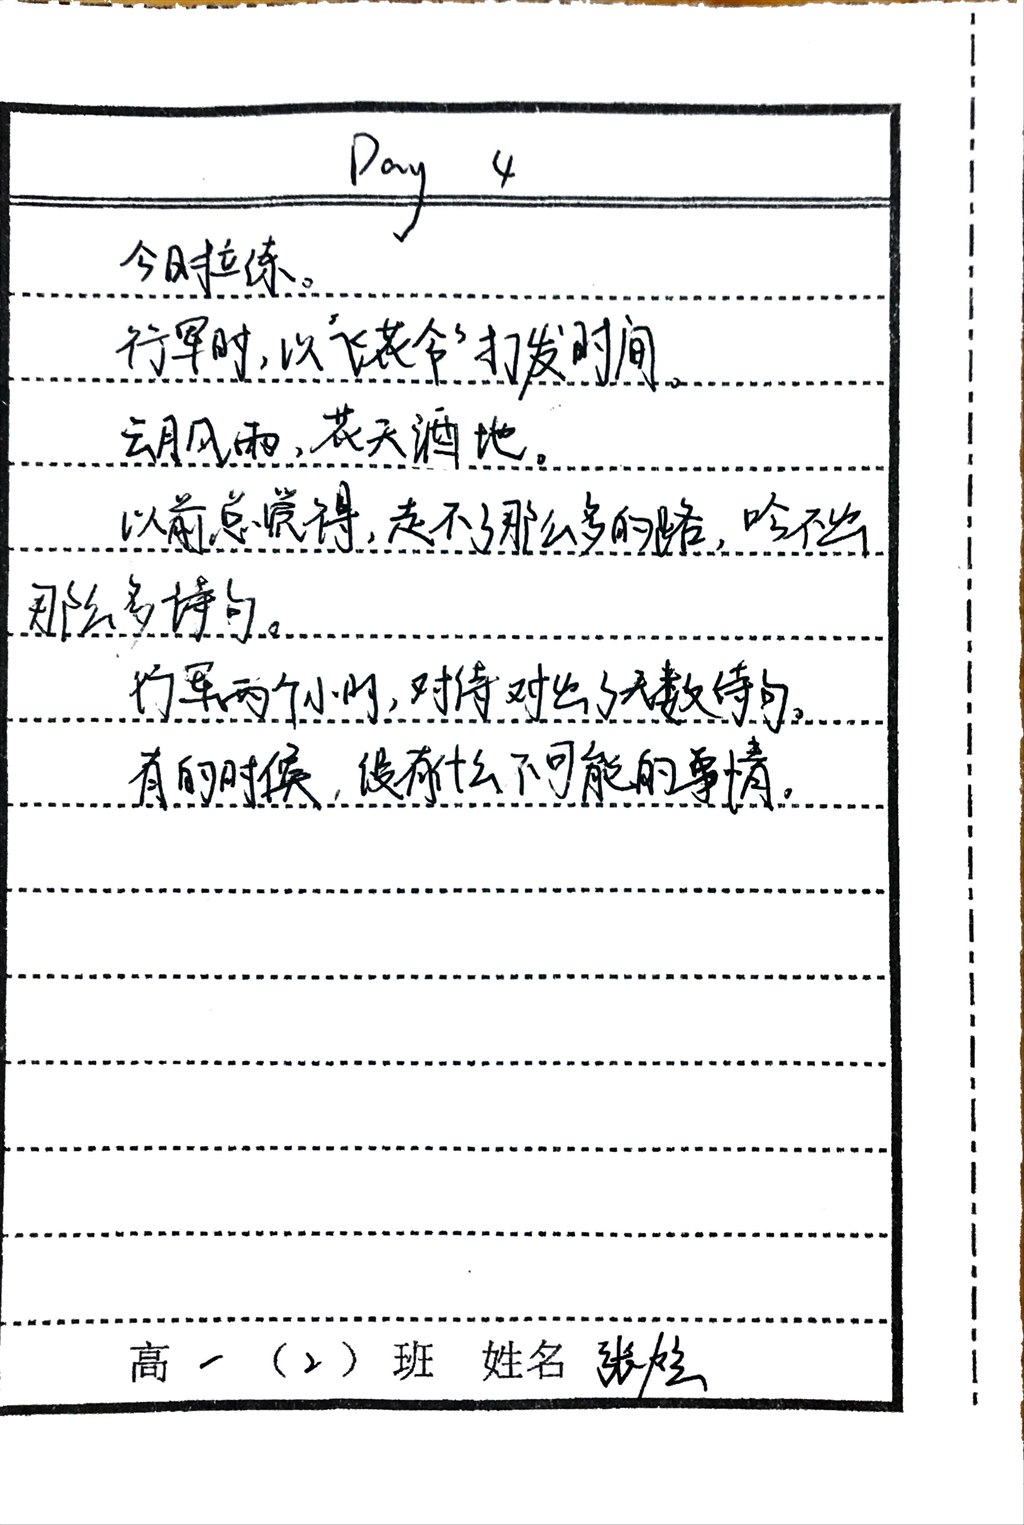 Day 4
今日拉练。
行军时，以“飞花令”打发时间。
云月风雨，花天酒地。
以前总觉得，走不了那么多的路，吟不出
那么多诗句。
行军两个小时，对诗对出了无数诗句。
有的时候，没有什么不可能的事情。
高一（2）班 姓名 张